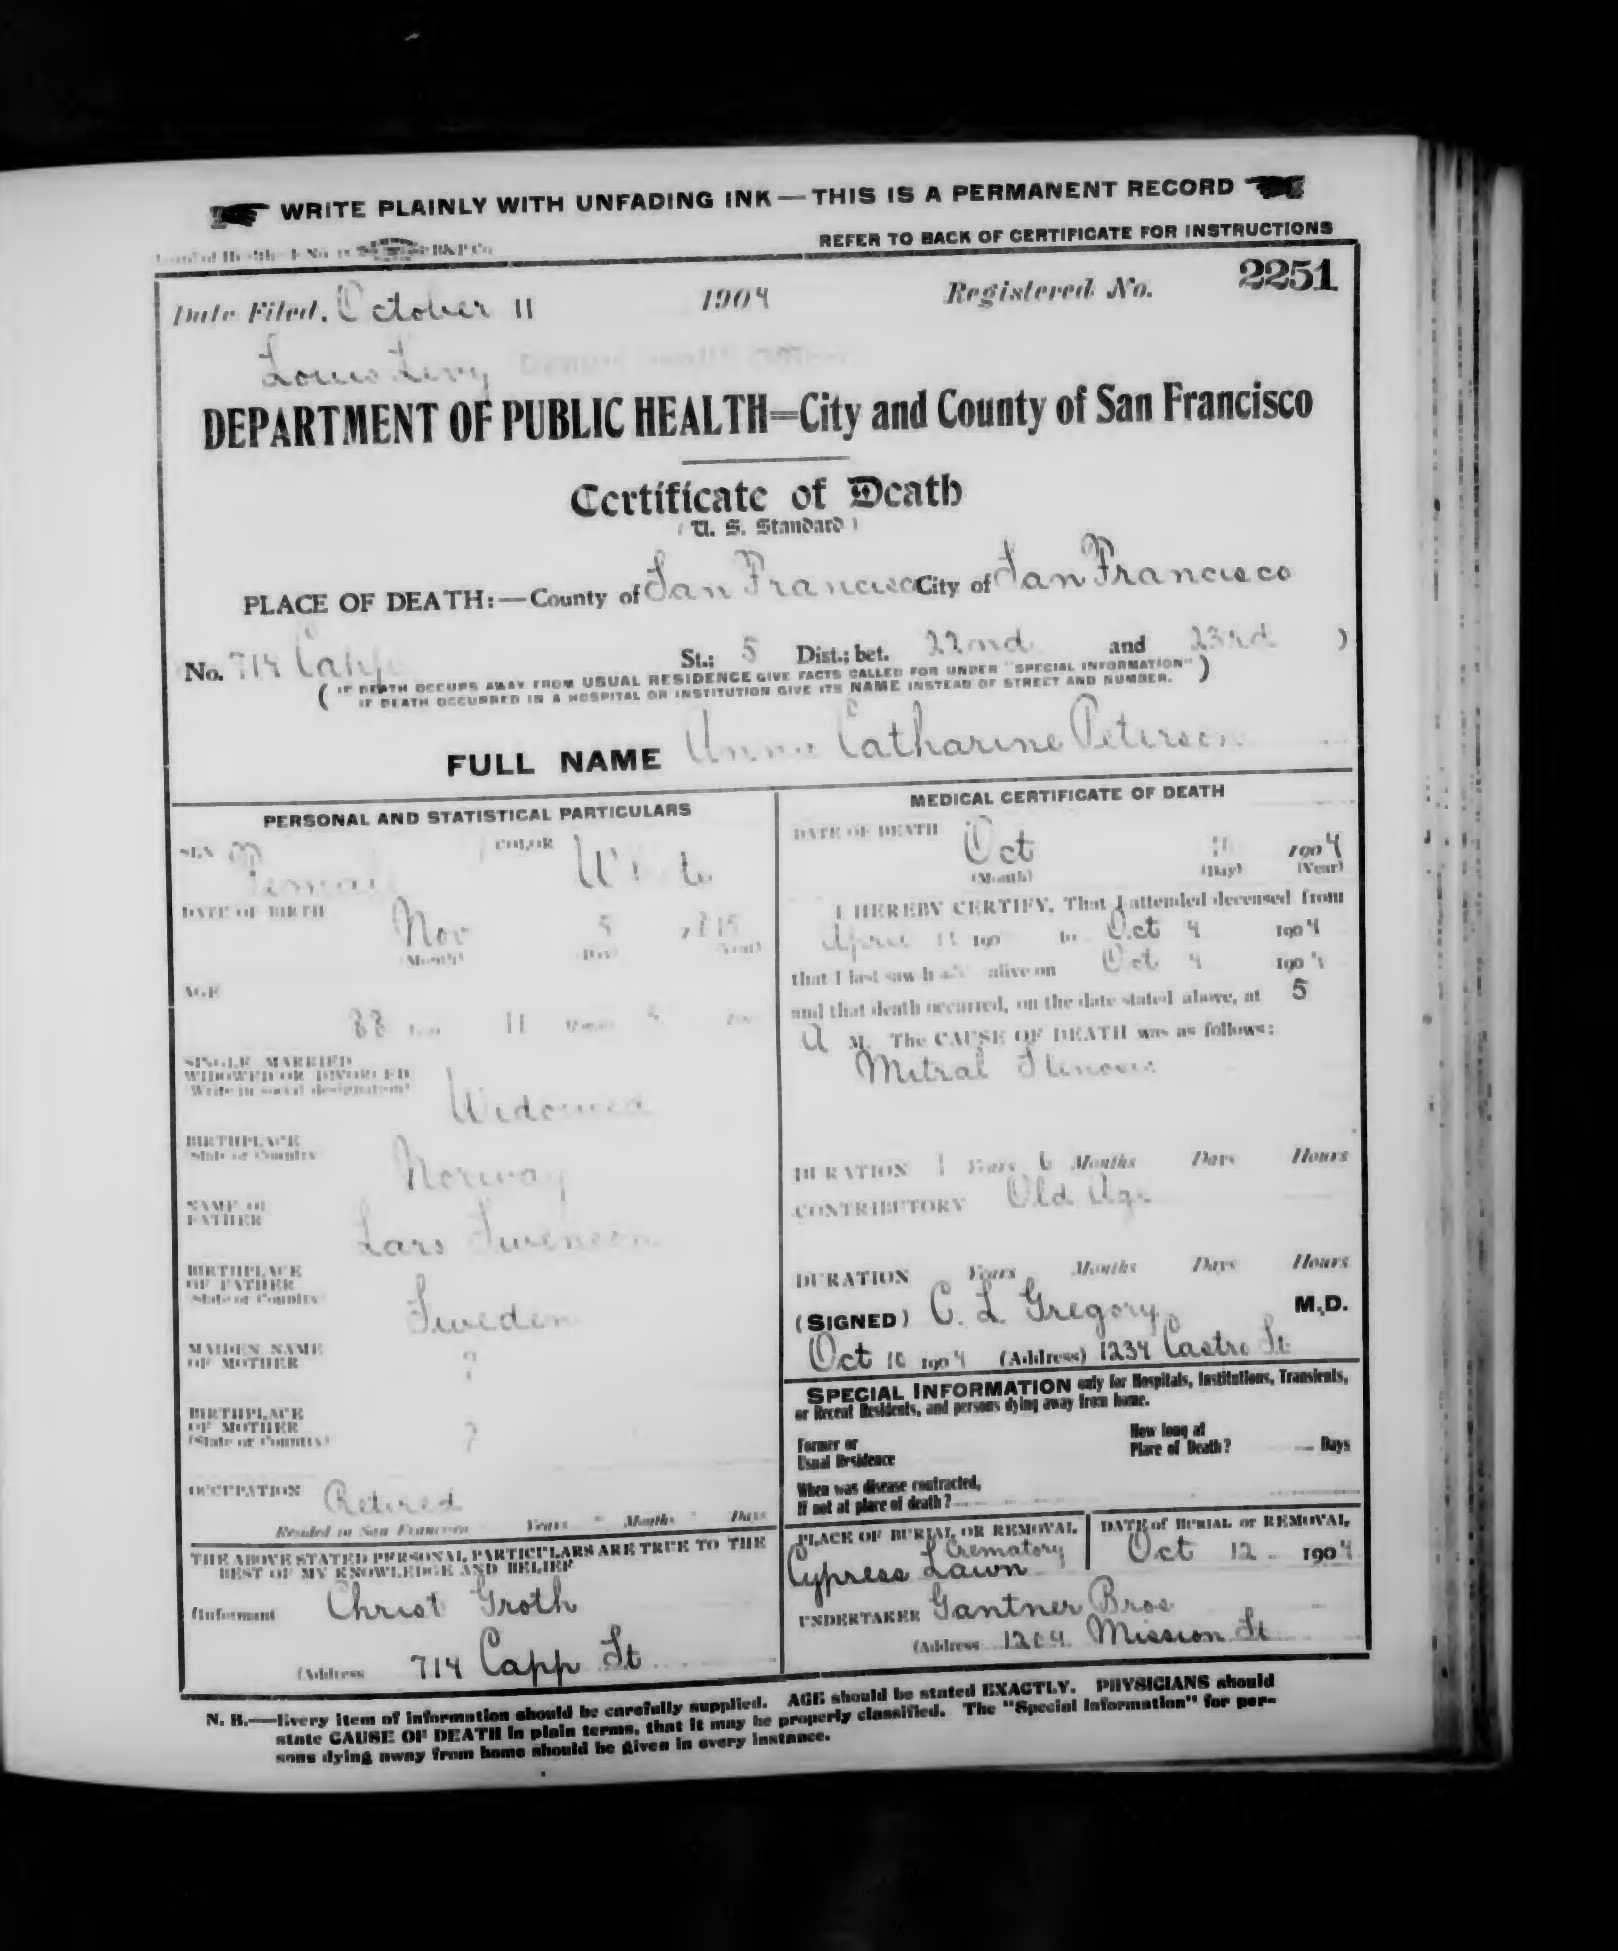 WRITE PLAINLY WITH UNFADING INK — THIS IS A PERMANENT RECORD
REFER TO BACK OF CERTIFICATE FOR INSTRUCTIONS
Date Filed, October 11 1904 Registered No. 2251
Louis Levy
DEPARTMENT OF PUBLIC HEALTH=City and County of San Francisco
Certificate of Death
(U. S. Standard)
PLACE OF DEATH:—County of San Francisco City of San Francisco
No. 714 Capp St.; 5 Dist.; bet. 22nd and 23rd )
( IF DEATH OCCURS AWAY FROM USUAL RESIDENCE GIVE FACTS CALLED FOR UNDER "SPECIAL INFORMATION"
IF DEATH OCCURRED IN A HOSPITAL OR INSTITUTION GIVE ITS NAME INSTEAD OF STREET AND NUMBER. )
FULL NAME Anna Catharine Peterson
PERSONAL AND STATISTICAL PARTICULARS
SEX Female COLOR White
DATE OF BIRTH Nov 5 1815
(Month) (Day) (Year)
AGE
88 Years 11 Months Days
SINGLE, MARRIED
WIDOWED OR DIVORCED
(Write in social designation)
Widowed
BIRTHPLACE
(State or Country)
Norway
NAME OF
FATHER
Lars Swenson
BIRTHPLACE
OF FATHER
(State or Country)
Sweden
MAIDEN NAME
OF MOTHER ?
BIRTHPLACE
OF MOTHER
(State or Country) ?
OCCUPATION Retired
Resided in San Francisco Years Months Days
THE ABOVE STATED PERSONAL PARTICULARS ARE TRUE TO THE
BEST OF MY KNOWLEDGE AND BELIEF
(Informant Christ Groth
(Address 714 Capp St
MEDICAL CERTIFICATE OF DEATH
DATE OF DEATH Oct 1904
(Month) (Day) (Year)
I HEREBY CERTIFY, That I attended deceased from
April 11 190 to Oct 4 1904
that I last saw h alive on Oct 4 1904
and that death occurred, on the date stated above, at 5
A M. The CAUSE OF DEATH was as follows:
Mitral Stenosis
DURATION 1 Years 6 Months Days Hours
CONTRIBUTORY Old Age
DURATION Years Months Days Hours
(SIGNED) C. L. Gregory M.D.
Oct 10 1904 (Address) 1234 Castro St
SPECIAL INFORMATION only for Hospitals, Institutions, Transients,
or Recent Residents, and persons dying away from home.
Former or
Usual Residence
How long at
Place of Death? Days
When was disease contracted,
If not at place of death?
PLACE OF BURIAL OR REMOVAL
Crematory
Cypress Lawn
DATE of BURIAL or REMOVAL
Oct 12 1904
UNDERTAKER Gantner Bros
(Address 1204 Mission St
N. B.—Every item of information should be carefully supplied. AGE should be stated EXACTLY. PHYSICIANS should
state CAUSE OF DEATH in plain terms, that it may be properly classified. The "Special Information" for per-
sons dying away from home should be given in every instance.